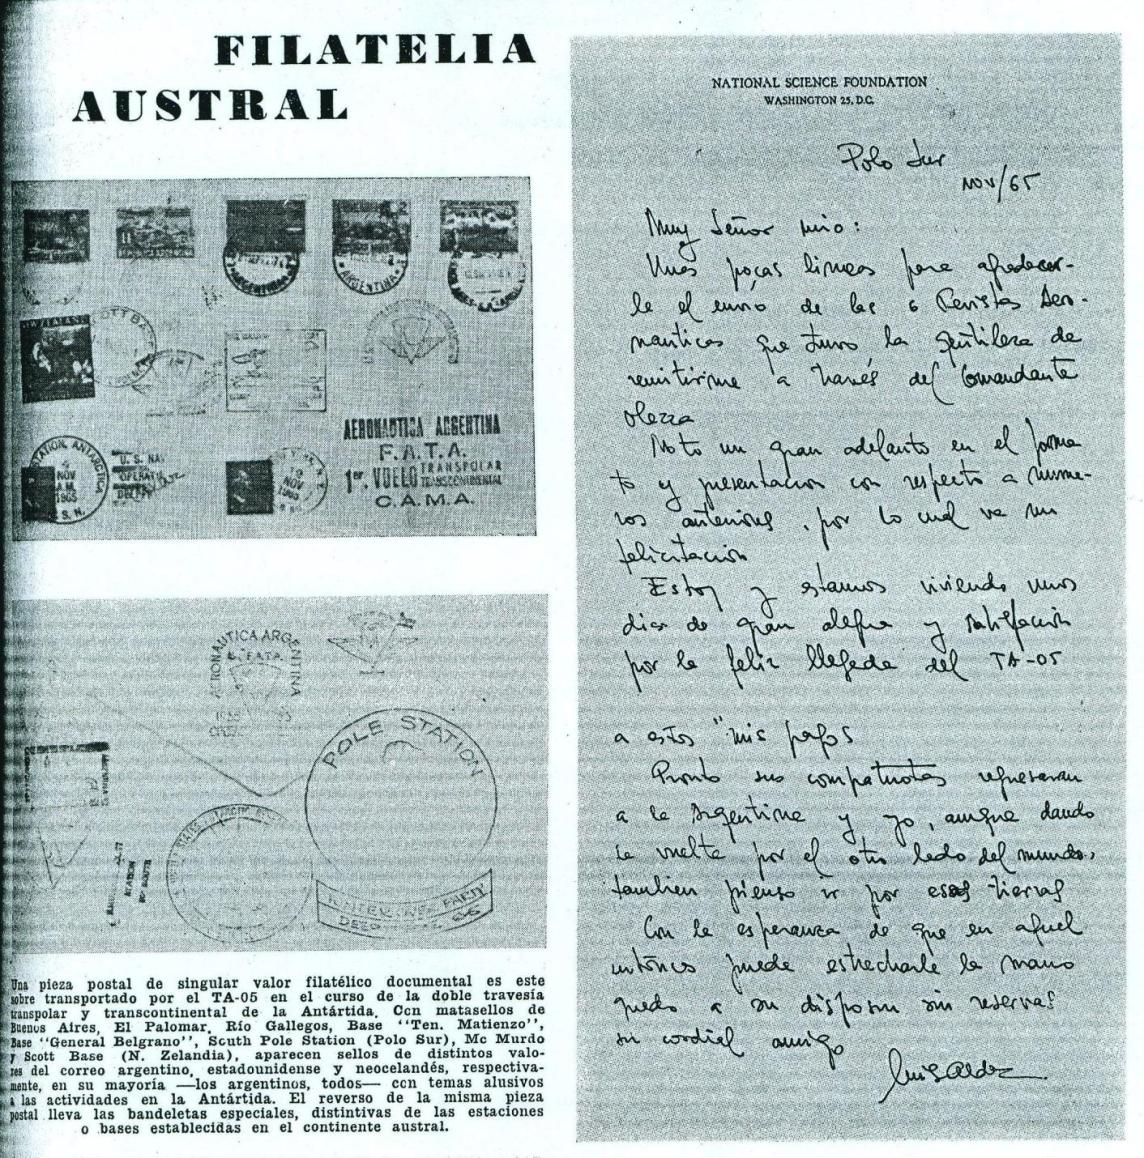 FILATELIA
AUSTRAL
ARGENTINA
ARGENTINA
NEW ZEALAND
SCOTT BASE
AERONAUTICA ARGENTINA
F.A.T.A.
1er. VUELO TRANSPOLAR
TRANSCONTINENTAL
C.A.M.A.
STATION, ANTARCTICA
4
NOV
A.M.
1965
U.S.N.
U. S. NA
OPERATI
10
NOV
AERONAUTICA ARGENTINA
F.A.T.A.
POLE STATION
WINTERING PARTY
DEEP
Una pieza postal de singular valor filatélico documental es este
sobre transportado por el TA-05 en el curso de la doble travesía
transpolar y transcontinental de la Antártida. Con matasellos de
Buenos Aires, El Palomar, Río Gallegos, Base "Ten. Matienzo",
Base "General Belgrano", South Pole Station (Polo Sur), Mc Murdo
y Scott Base (N. Zelandia), aparecen sellos de distintos valo-
res del correo argentino, estadounidense y neocelandés, respectiva-
mente, en su mayoría —los argentinos, todos— con temas alusivos
a las actividades en la Antártida. El reverso de la misma pieza
postal lleva las bandeletas especiales, distintivas de las estaciones
o bases establecidas en el continente austral.
NATIONAL SCIENCE FOUNDATION
WASHINGTON 25, D.C.
Polo Sur
Nov/65
Muy Señor mio:
Unas poças lineas para agradecer-
le el envio de las 6 Revistas Aero-
nauticas que tuvo la gentileza de
remitirme a través del Comandante
Olezza
Noto un gran adelanto en el forma
to y presentacion con respecto a nume-
ros anteriores, por lo cual va mi
felicitacion
Estoy y estamos viviendo unos
dias de gran alegria y satisfacion
por la feliz llegada del TA-05
a estos "mis pagos
Pronto sus compatriotas regresaran
a la Argentina y yo, aunque dando
la vuelta por el otro lado del mundo,
tambien pienso ir por esas tierras
Con la esperanza de que en aquel
entonces puede estrecharle la mano
quedo a su disposon sin reservas
su cordial amigo